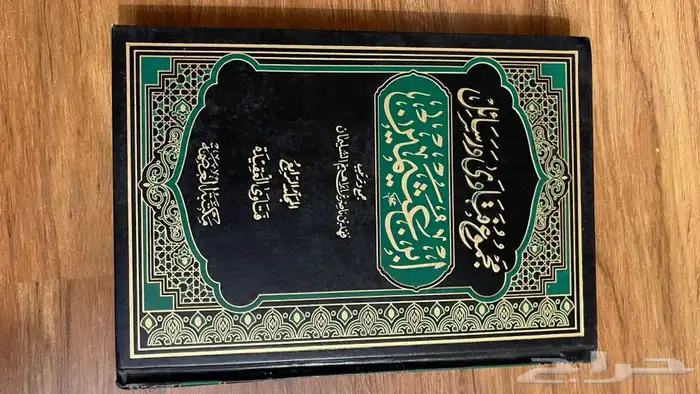 مجموع فتاوى ورسائل
ابن عثيمين
جمع وترتيب
فهد بن ناصر بن إبراهيم السليمان
المجلد الرابع
فتاوى العقيدة
حراج